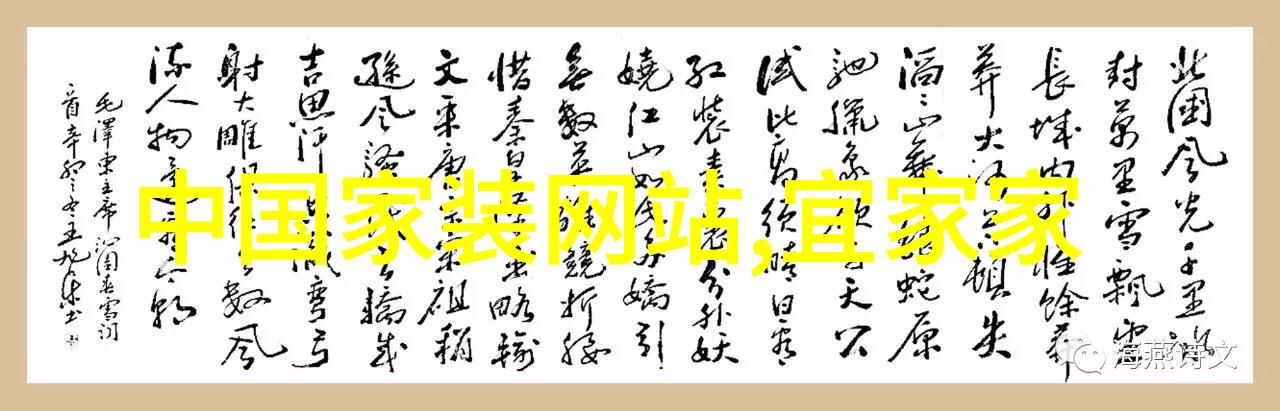 北国风光千里冰
封萬里雪飄望
長城内外惟餘莽
莽大河上下頓失
滔滔山舞銀蛇原
馳蠟象欲与天公
试比高须晴日看
红装素裹分外妖
娆江山如此多嬌引
無數英雄競折腰
惜秦皇漢武略输
文采唐宗宋祖稍
遜风騷一代天驕成
吉思汗只识彎弓
射大雕俱往矣數风
流人物还看今朝
毛澤東主席沁園春雪词
首辛卯之冬王 书
中国家装网站,宜家家
海燕诗文